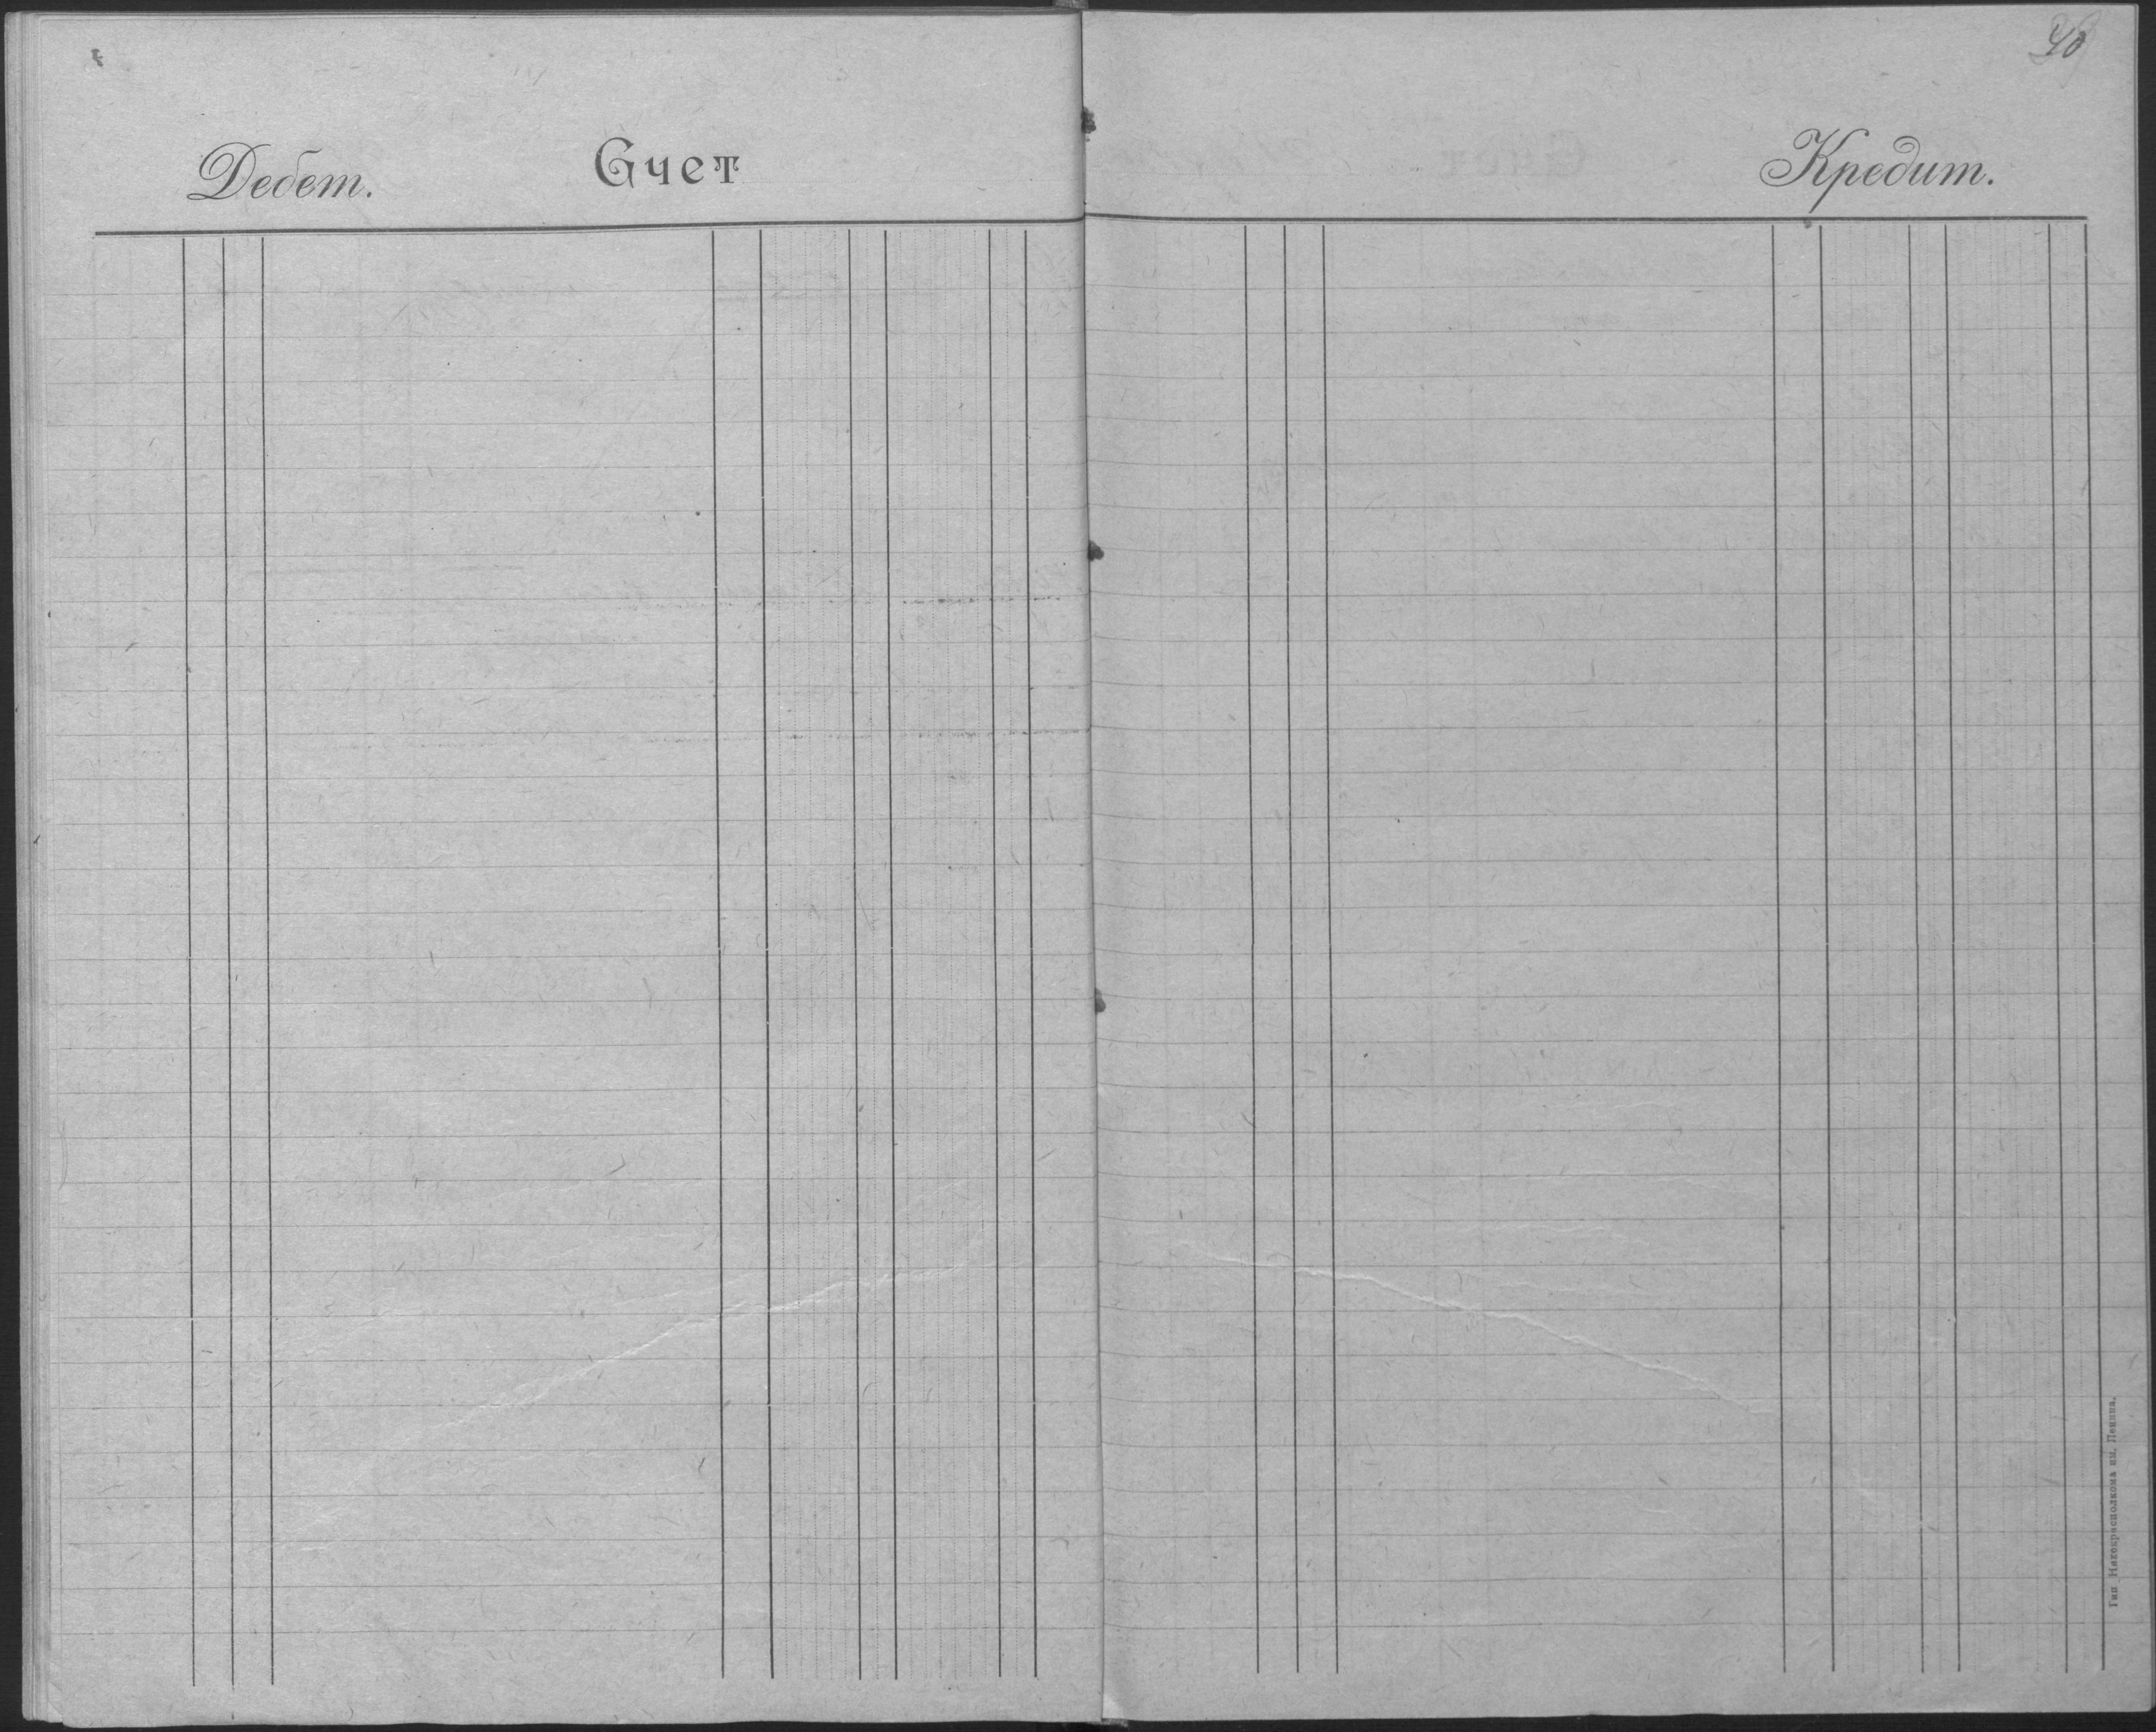 40
Дебет. Счет
Кредит.
Тип. Никокрисполкома им. Ленина.